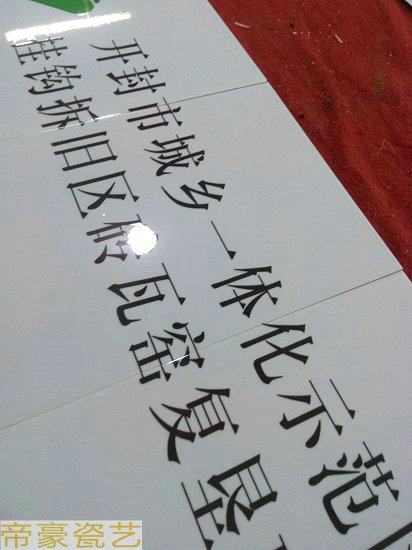 开封市城乡一体化示范
挂钩拆旧区砖瓦窑复垦
帝豪瓷艺